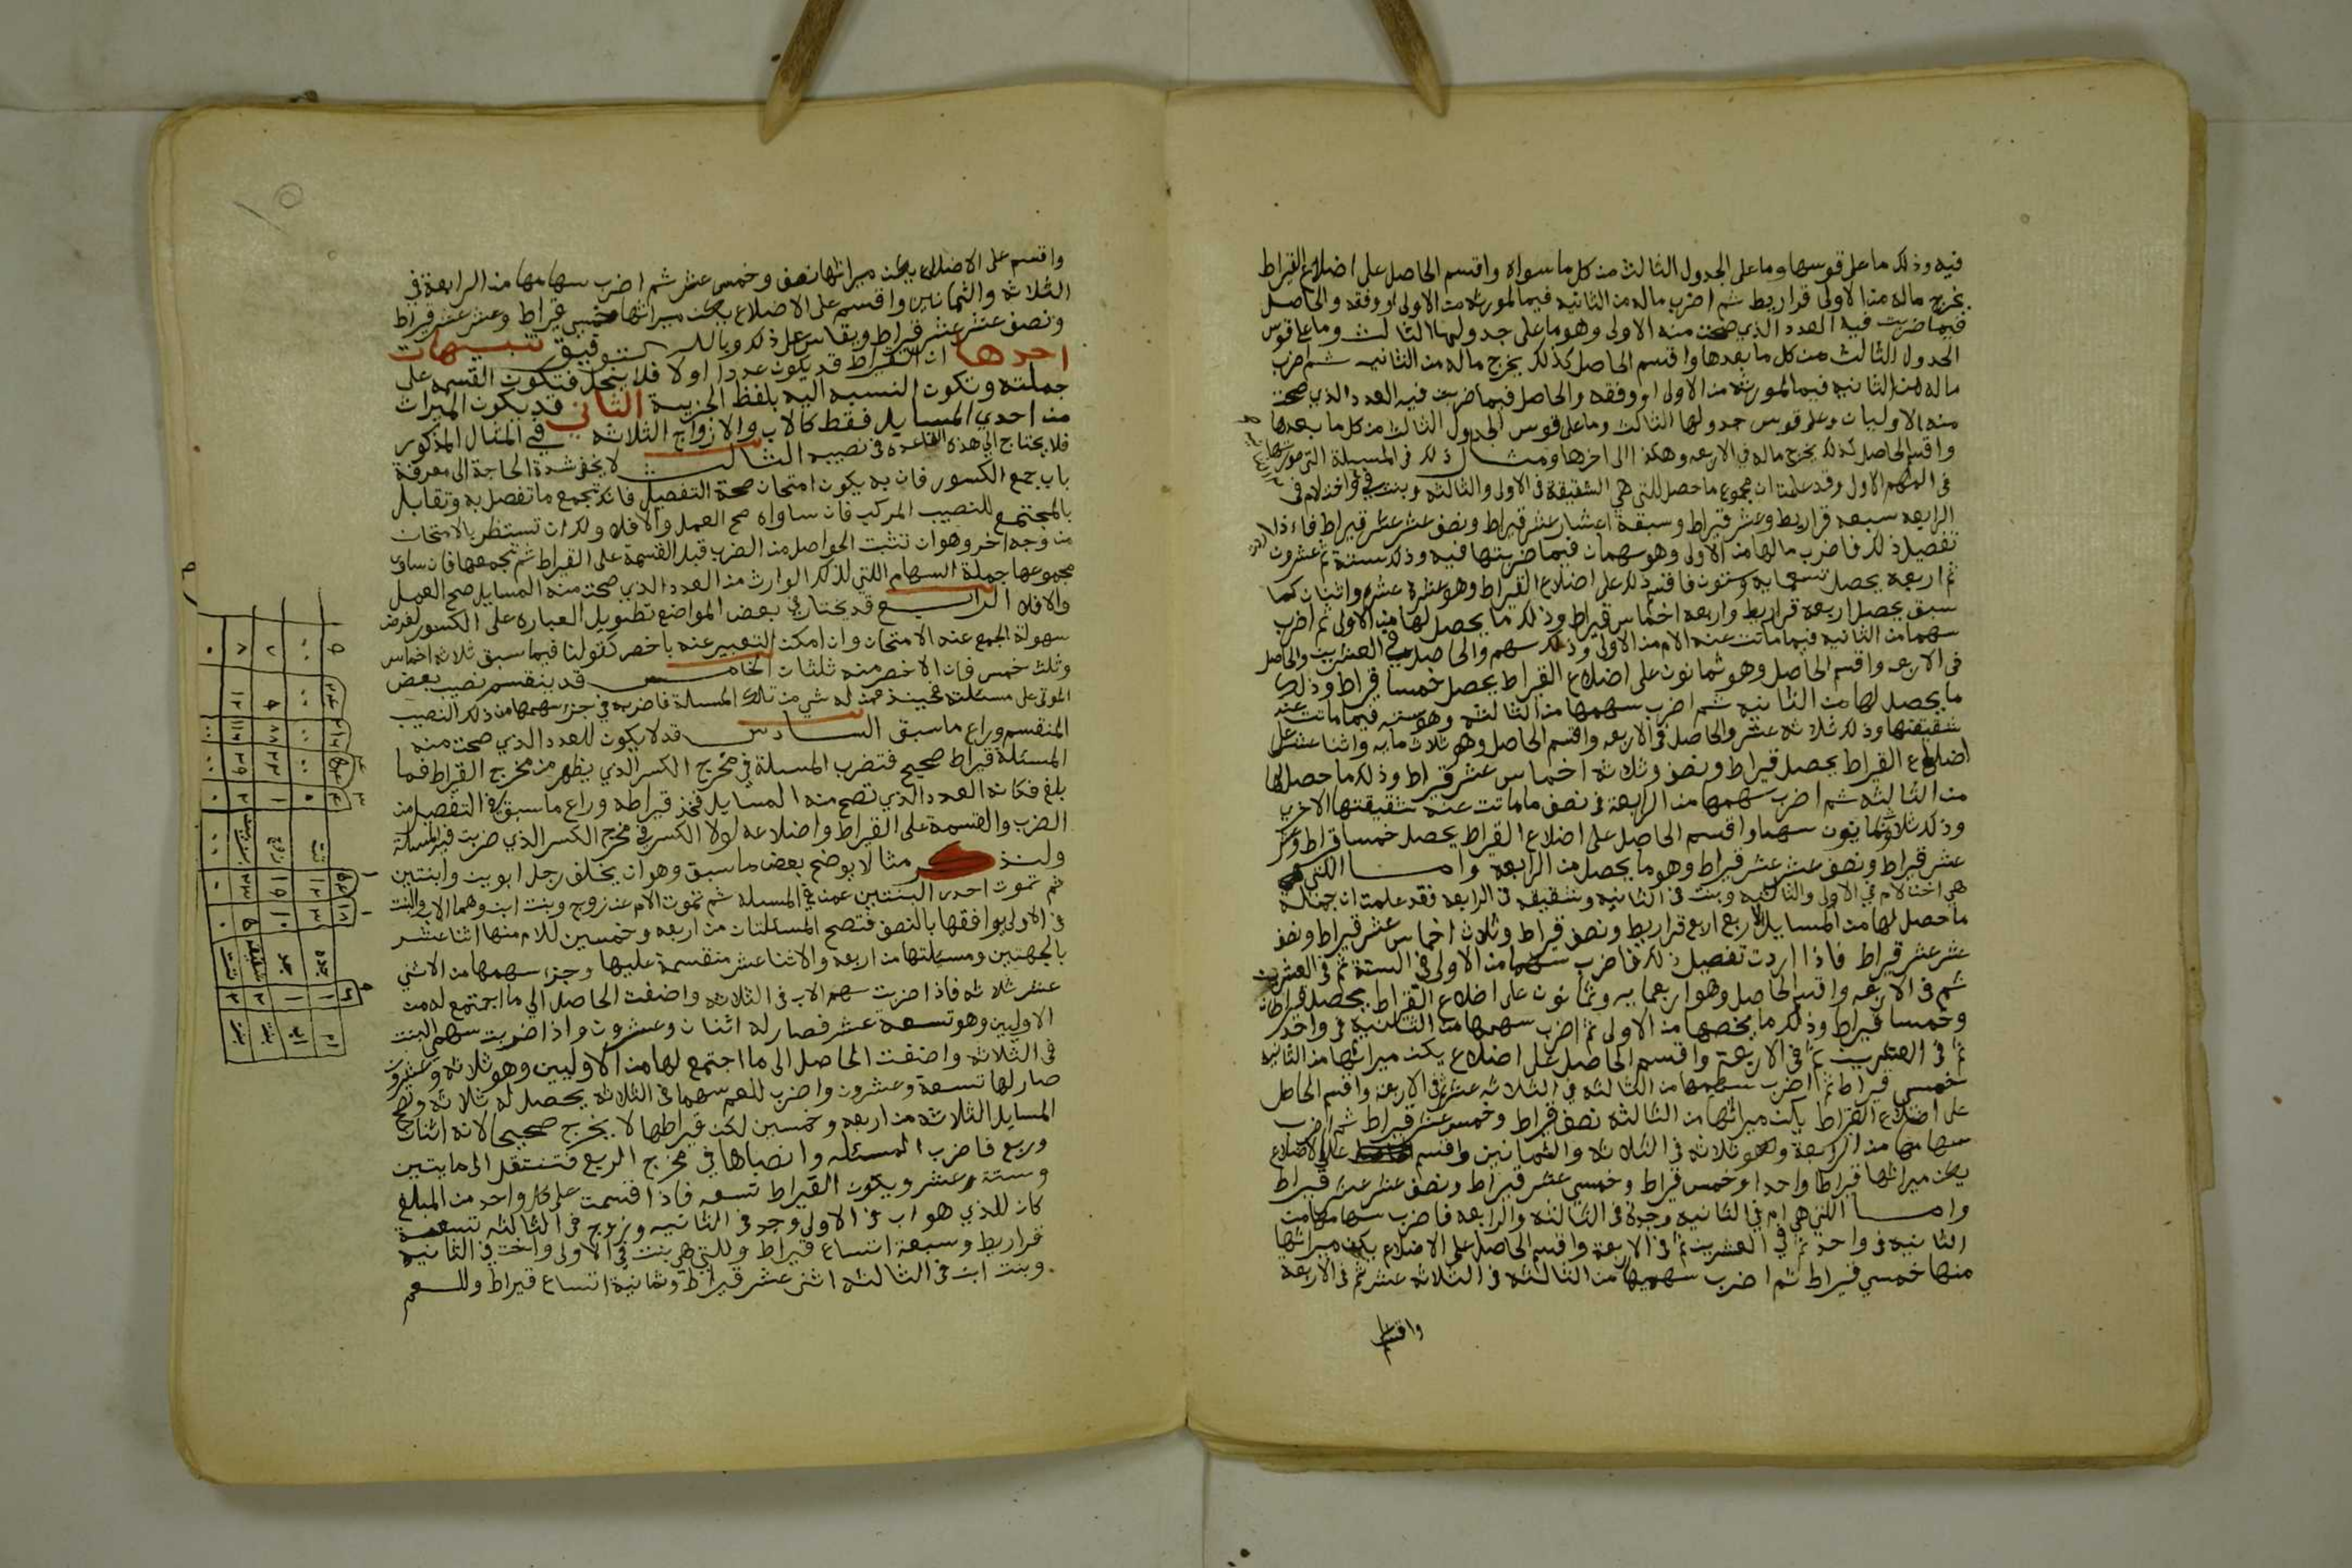 فيه وذلك ما على قوسها وما على الجدول الثالث من كل ما سواه واقسم الحاصل على اضلاع القيراط
يخرج ماله من الاولى قراريط ثم اضرب ماله من الثانيه فيما لمورثه من الاولى او وفقه والحاصل
فيما ضربت فيه العدد الذي صحت منه الاولى وهو ما على جدولها الثالث وما على قوس
الجدول الثالث من كل ما بعدها واقسم الحاصل كذلك يخرج ماله من الثانيه ثم اضرب
ماله من الثانيه فيما لمورثه من الاولى او وفقه والحاصل فيما ضربت فيه العدد الذي صحت
منه الاوليات وعلى قوس جدولها الثالث وما على قوس الجدول الثالث من كل ما بعدها
واقسم الحاصل كذلك يخرج ماله في الاربعه وهكذا الى اخرها ومثال ذلك في المسيلة التي
في الاول وقد علمنا ان مجموع ما حصل للتي هي الشقيقة في الاولى والثالثه وبنت في واخت لام في
الرابعه سبعه قراريط وعشر قيراط وسبعة اعشار عشر قيراط ونصف عشر عشر قيراط فاذا اردت
تفصيل ذلك فاضرب مالها من الاولى وهو سهمان فيما ضربتها فيه وذلك ستة ثم عشرون
ثم اربعه يحصل تسعمايه وستون فاقسم ذلك على اضلاع القيراط وهو عشرة عشره واثنان كما
سبق يحصل اربعه قراريط واربعه اخماس قيراط وذلك ما يحصل لها من الاولى ثم اضرب
سهما من الثانيه فيما ماتت عنه الام من الاولى وذلك سهم والحاصل في العشرين والحاصل
في الاربعه واقسم الحاصل وهو ثمانون على اضلاع القيراط يحصل خمسا قيراط وذلك
ما يحصل لها من الثانيه ثم اضرب سهمها من الثالثه وهو سته فيما ماتت عنه
شقيقتها وذلك ثلاثه عشر والحاصل في الاربعه واقسم الحاصل وهو ثلاث مايه واثنا عشر على
اضلاع القيراط يحصل قيراط ونصف وثلاثه اخماس عشر قيراط وذلك ما حصل لها
من الثالثه ثم اضرب سهمها من الرابعة في نصف ما ماتت عنه شقيقتها الاخرى
وذلك ثلاثه وثمانون سهما واقسم الحاصل على اضلاع القيراط يحصل خمسا قيراط وعشر
عشر قيراط ونصف عشر عشر قيراط وهو ما يحصل من الرابعه واما اللتي
هي اخت لام في الاولى والثالثه وبنت في الثانيه وشقيقه في الرابعه فقد علمت ان جملة
ما حصل لها من المسايل الاربع اربع قراريط ونصف قيراط وثلاث اخماس عشر قيراط ونصف
عشر عشر قيراط فاذا اردت تفصيل ذلك فاضرب سهما من الاولى في الستة ثم في العشرين
ثم في الاربعه واقسم الحاصل وهو اربعمايه وثمانون على اضلاع القيراط يحصل قيراطان
وخمسا قيراط وذلك ما يخصها من الاولى ثم اضرب سهمها من الثانيه في واحد
ثم في العشرين ثم في الاربعة واقسم الحاصل على اضلاع يكن ميراثها من الثانيه
خمسي قيراط ثم اضرب سهمها من الثالثه في الثلاثه عشر ثم في الاربعة واقسم الحاصل
على اضلاع القيراط يكن ميراثها من الثالثه نصف قيراط وخمس عشر قيراط ثم اضرب
سهامها من الرابعة وهو ثلاثه في الثلاثه والثمانين واقسم على الاضلاع
يكن ميراثها قيراطا واحدا وخمس قيراط وخمسي عشر قيراط ونصف عشر عشر قيراط
واما اللتي هي ام في الثانيه وجدة في الثالثه والرابعه فاضرب سهامها من
الثانيه في واحد ثم في العشرين ثم في الاربعة واقسم الحاصل على الاضلاع يكن ميراثها
منها خمسي قيراط ثم اضرب سهمها من الثالثه في الثلاثه عشر ثم في الاربعة
واقسم
واقسم على الاضلاع يكن ميراثها نصف وخمس عشر ثم اضرب سهامها من الرابعة في
الثلاثه والثمانين واقسم على الاضلاع يكن ميراثها خمسي قيراط وعشر عشر قيراط
ونصف عشر عشر قيراط ويقاس على ذلك وبالله التوفيق تنبيهات
احدها ان القيراط قد يكون عددا اولا فلا ينحل فتكون القسمه على
جملته وتكون النسبه اليه بلفظ الجزييه الثاني قد يكون الميراث
من احدى المسايل فقط كالاب والازواج الثلاثه في المثال المذكور
فلا يحتاج الى هذه القاعده في نصيبه الثالث لا يخفى شدة الحاجة الى معرفة
باب جمع الكسور فان به يكون امتحان صحة التفصيل فانك تجمع ما تفصل به وتقابل
بالمجتمع للنصيب المركب فان ساواه صح العمل والا فلا ولك ان تستظهر بالامتحان
من وجه اخر وهو ان تثبت الحواصل من الضرب قبل القسمة على القيراط ثم تجمعها فان ساوى
مجموعها جملة السهام اللتي لذلك الوارث من العدد الذي صحت منه المسايل صح العمل
والا فلا الرابع قد يختار في بعض المواضع تطويل العباره على الكسور لغرض
سهولة الجمع عند الامتحان وان امكن التعبير عنه باخصر كقولنا فيما سبق ثلاثه اخماس
وثلث خمس فان الاخصر منه ثلثان الخامس قد ينقسم نصيب بعض
الموتى على مسئلته فحينئذ من له شي من تلك المسالة فاضربه في جزء سهمها من ذلك النصيب
المنقسم وراع ما سبق السادس قد لا يكون للعدد الذي صحت منه
المسئلة قيراط صحيح فتضرب المسيلة في مخرج الكسر الذي يظهر من مخرج القيراط فما
بلغ فكانه العدد الذي تصح منه المسايل فخذ قيراطه وراع ما سبق في التفصيل من
الضرب والقسمة على القيراط واضلاعه لولا الكسر في مخرج الكسر الذي ضربت فيه المسالة
ولنذكر مثالا يوضح بعض ما سبق وهو ان يخلف رجل ابوين وابنتين
ثم تموت احدى البنتين عمن في المسيله ثم تموت الام عن زوج وبنت ابن وهما الاب والبنت
في الاولى يوافقها بالنصف فتصح المسئلتان من اربعه وخمسين للام منها اثنا عشر
بالجهتين ومسيلتها من اربعه والاثنا عشر منقسمة عليها وجزء سهمها من الاثني
عشر ثلاثه فاذا ضربت سهم الاب في الثلاثه واضفت الحاصل الى ما اجتمع له من
الاوليين وهو تسعه عشر فصار له اثنان وعشرون واذا ضربت سهمي البنت
في الثلاثه واضفت الحاصل الى ما اجتمع لها من الاوليين وهو ثلاثه وعشرون
صار لها تسعة وعشرون واضرب للعم سهما في الثلاثه يحصل له ثلاثه وتصح
المسايل الثلاثه من اربعه وخمسين لكن قيراطها لا يخرج صحيحا لانه اثنان
وربع فاضرب المسئله وانصباها في مخرج الربع فتنتقل الى مايتين
وستة وعشر ويكون القيراط تسعه فاذا قسمت على كل واحد من المبلغ
كان للذي هو اب في الاولى وجد في الثانيه وزوج في الثالثه تسعة
قراريط وسبعة اتساع قيراط وللتي هي بنت في الاولى واخت في الثانيه
وبنت ابن في الثالثه اثني عشر قيراط وثمانية اتساع قيراط وللعم